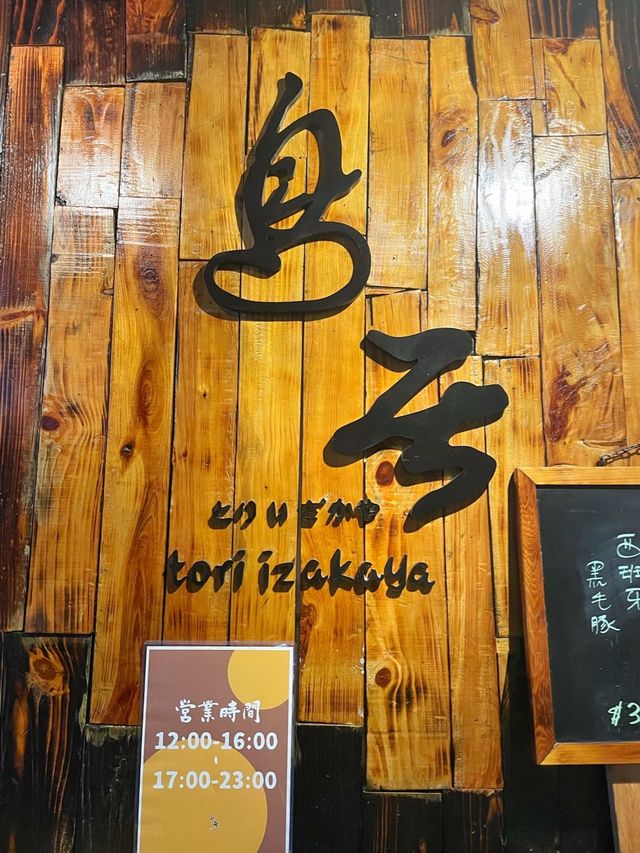 鳥
とり いざかや
tori izakaya
営業時間
12:00-16:00
17:00-23:00
西班牙
黑毛豚
$3